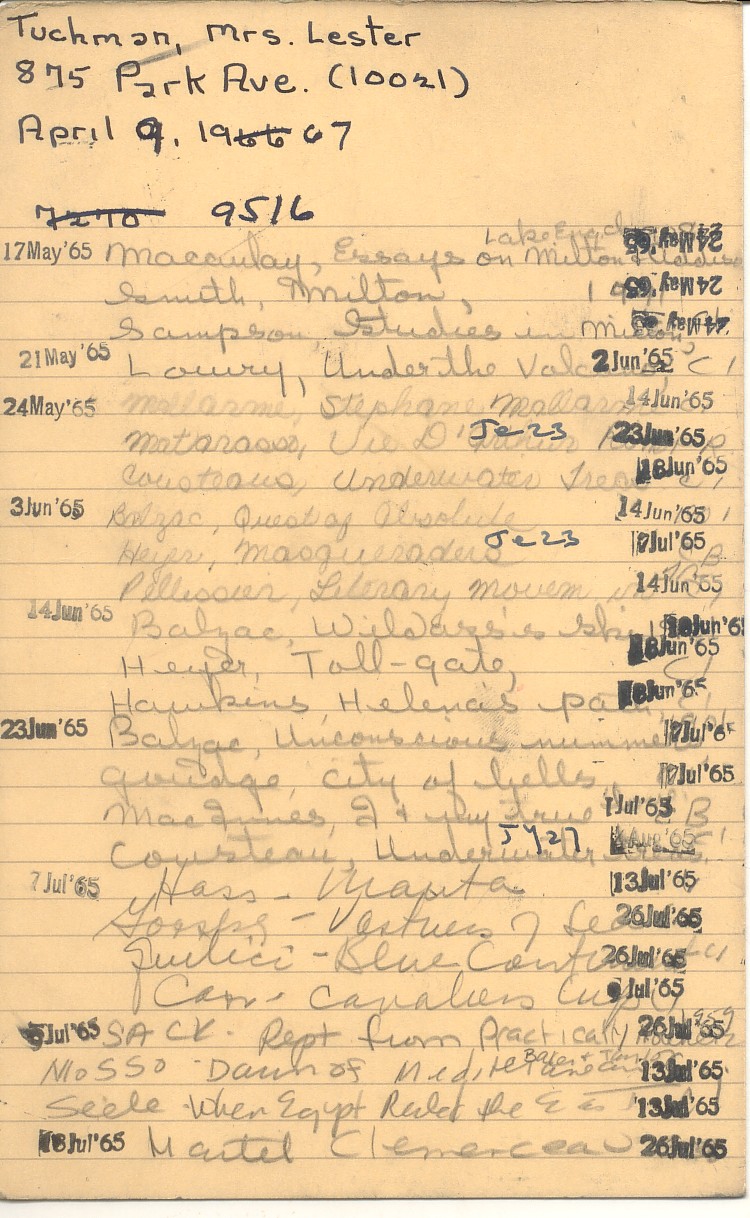 Tuchman, Mrs. Lester
875 Park Ave. (10021)
April 9, 1966 67
7270 9516
17 May '65 Macaulay, Essays on Milton & Addiso 24 May '65
Smith, Milton, 24 May '65
Sampson, Studies in Milton 24 May '65
21 May '65 Lowry, Under the Volcano 2 Jun '65 C1
24 May '65 Mallarme, Stephane Mallarme 14 Jun '65
Matarasso, Vie D'Arthur Je 23 23 Jun '65
Cousteau, Underwater Treas 18 Jun '65
3 Jun '65 Balzac, Quest of Absolute 14 Jun '65
Heyer, Masqueraders Je 23 7 Jul '65
Pellissier, Literary movem in 14 Jun '65
14 Jun '65 Balzac, Wild ass's ski 18 Jun '65
Heyer, Toll-gate, 18 Jun '65
Hawkins, Helena's pa 18 Jun '65
23 Jun '65 Balzac, Unconscious mumme 7 Jul '65
Goudge, City of bells, 7 Jul '65
MacInnes, I & my true 1 Jul '65 B
Cousteau, Underwater Jy 27
7 Jul '65 Hass - Manta 13 Jul '65
26 Jul '65
Quilici - Blue Contin 26 Jul '65
Carr - Cavaliers Cup Jul '65
Jul '65 SACK - Rept from Practically Nowhere 1959 26 Jul '65
Mosso - Dawn of Mediterranean 13 Jul '65
Seele - When Egypt Ruled the East 13 Jul '65
Jul '65 Martel Clemenceau 26 Jul '65